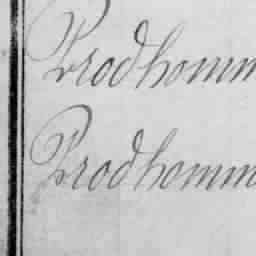 Prodhomm
Prodhomm